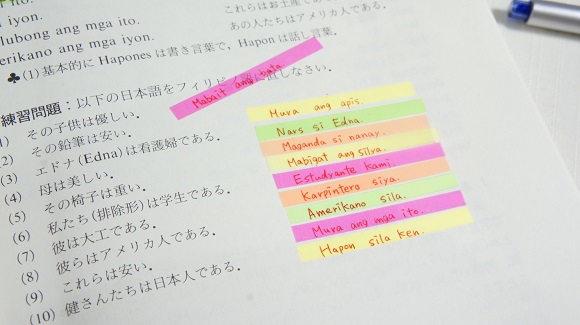 s iyon.
これらはお土産であ
lubong ang mga ito.
あの人たちはアメリカ人であ
erikano ang mga iyon.
♣(1) 基本的に Hapones は書き言葉で，Hapon は話し言葉．
練習問題：以下の日本語をフィリピノ語に訳しなさい．
Mabait ang bata
(1) その子供は優しい．
(2) その鉛筆は安い．
(3) エドナ(Edna)は看護婦である．
(4) 母は美しい．
(5) その椅子は重い．
(6) 私たち(排除形)は学生である．
(7) 彼は大工である．
(8) 彼らはアメリカ人である．
(9) これらは安い．
(10) 健さんたちは日本人である．
Mura ang apis.
Nars si Edna.
Maganda si nanay.
Mabigat ang silya.
Estudyante kami.
Karpintero siya.
Amerikano sila.
Mura ang mga ito.
Hapon sila ken.